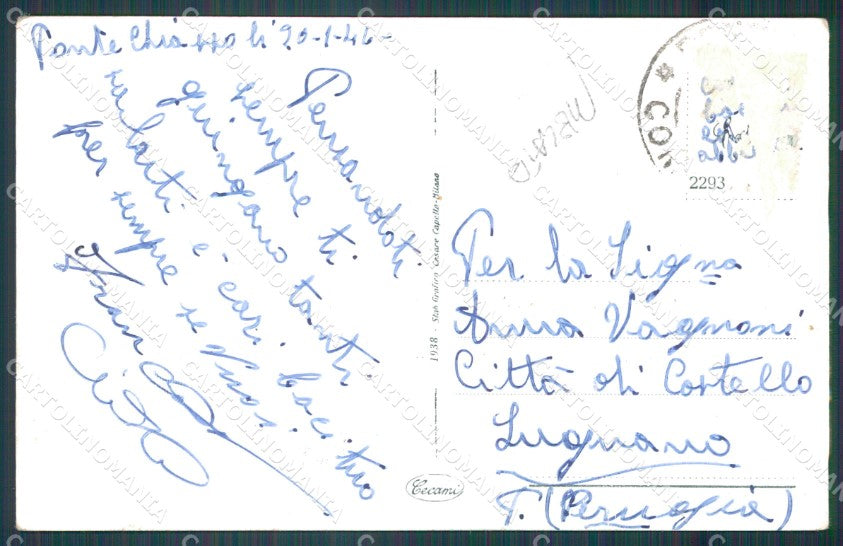 Ponte Chiasso li 20-1-42-
Pensandoti
sempre ti
giungano tanti
saluti e cari baci tuo
per sempre
CO
2293
1938 Stab Grafico Cesare Capello-Milano
Cecami
Per la Signa
Anna Vagnoni
Città di Castello
Lugnano
P. (Perugia)
CARTOLINOMANIA